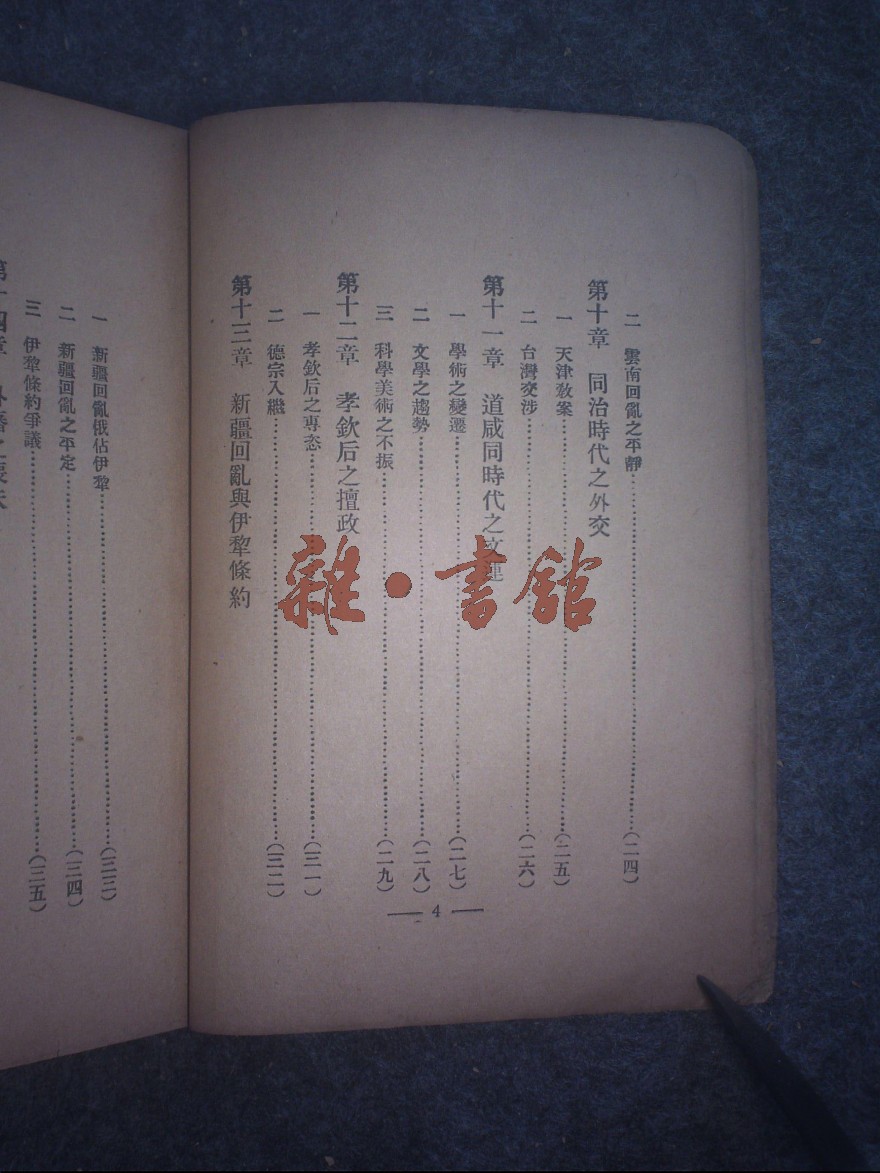 二　雲南回亂之平靜……(二四)
第十章　同治時代之外交
一　天津敎案……(二五)
二　台灣交涉……(二六)
第十一章　道咸同時代之文運
一　學術之變遷……(二七)
二　文學之趨勢……(二八)
三　科學美術之不振……(二九)
第十二章　孝欽后之擅政
一　孝欽后之専恣……(三一)
二　德宗入繼……(三二)
第十三章　新疆回亂與伊犂條約
— 4 —
一　新疆回亂俄佔伊犂……(三三)
二　新疆回亂之平定……(三四)
三　伊犂條約爭議……(三五)
第十四章　外藩之喪失
雜·書館